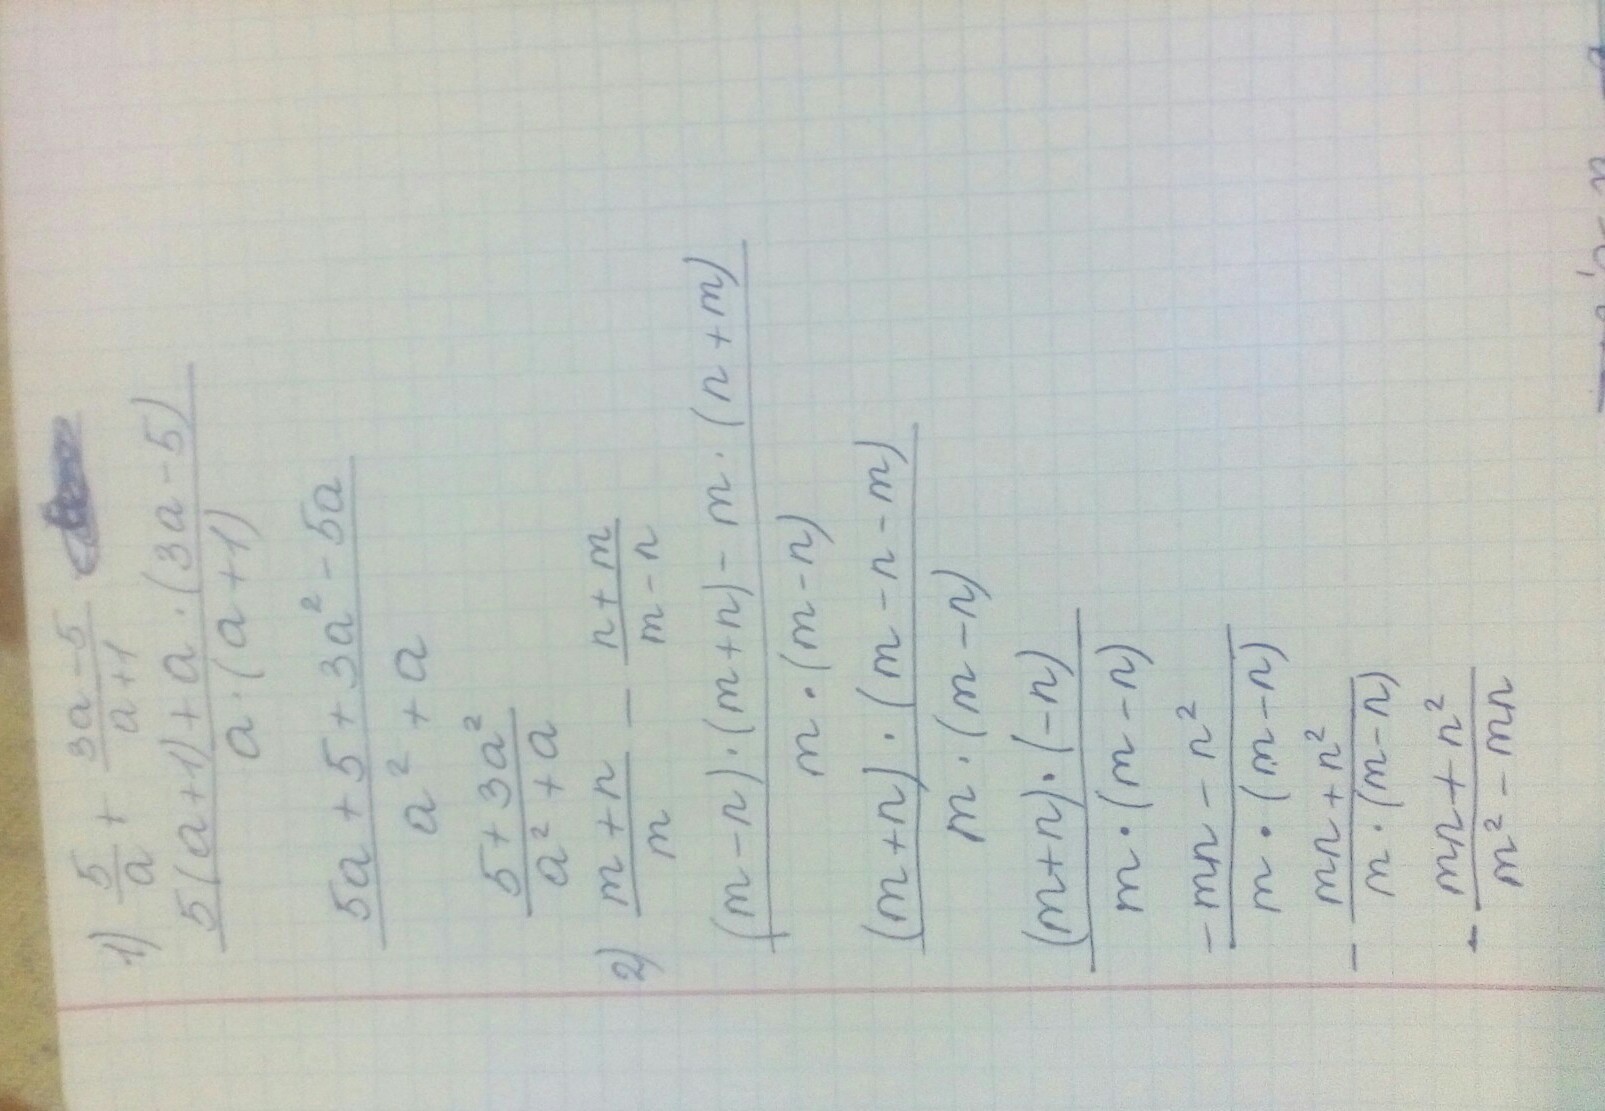 1) 5/a + (3a-5)/(a+1)
(5(a+1)+a·(3a-5))/(a·(a+1))
(5a+5+3a²-5a)/(a²+a)
(5+3a²)/(a²+a)
2) (m+n)/m - (n+m)/(m-n)
((m-n)·(m+n)-m·(n+m))/(m·(m-n))
((m+n)·(m-n-m))/(m·(m-n))
((m+n)·(-n))/(m·(m-n))
(-mn-n²)/(m·(m-n))
-(mn+n²)/(m·(m-n))
-(mn+n²)/(m²-mn)